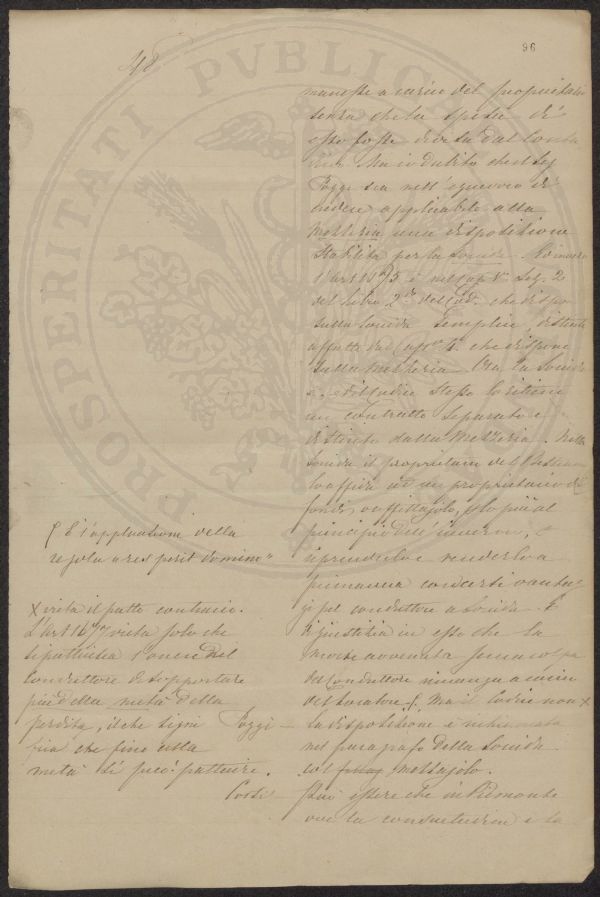 48
96
PROSPERITATI PUBLICAE
a carico del proprietario
senza che la spesa di
esso fosse divisa dal
Ma io dubito che il Sig
Poggi sia nell' equivoco di
credere applicabile alla
mezzeria una disposizione
stabilita per la Soccida.
l'art 1675 è nel Cap V Sez. 2
del libro 2 del Cod. che dispo
sulla Soccida semplice, distinta
affatto dal Cap 4 che dispone
sulla Mezzeria. Ora la Soccida
Codice stesso la ritiene
un contratto separato e
distinto dalla Mezzeria. Nella
Soccida il proprietario del Bestiame
lo affida ad un proprietario di
fondi, o affittajolo, più al
principio dell' inverno, e
riprenderlo e renderlo a
primavera con certi vantag
gi pel conduttore a Soccida. È
di giustizia in esso che la
morte avvenuta senza colpa
del Conduttore rimanga a carico
del locatore. Ma il Codice non X
Poggi — la disposizione è richiamata
nel paragrafo della Soccida
col mezzajolo.
Può essere che in Piemonte
ove la consuetudine è la
È l'applicazione della
regola "res perit domino"
X vieta il patto contrario.
L'art 1677 vieta solo che
si pattuisca l'onere del
Conduttore di sopportare
più della metà della
perdita, il che signi
fica che fino alla
metà si può pattuire.